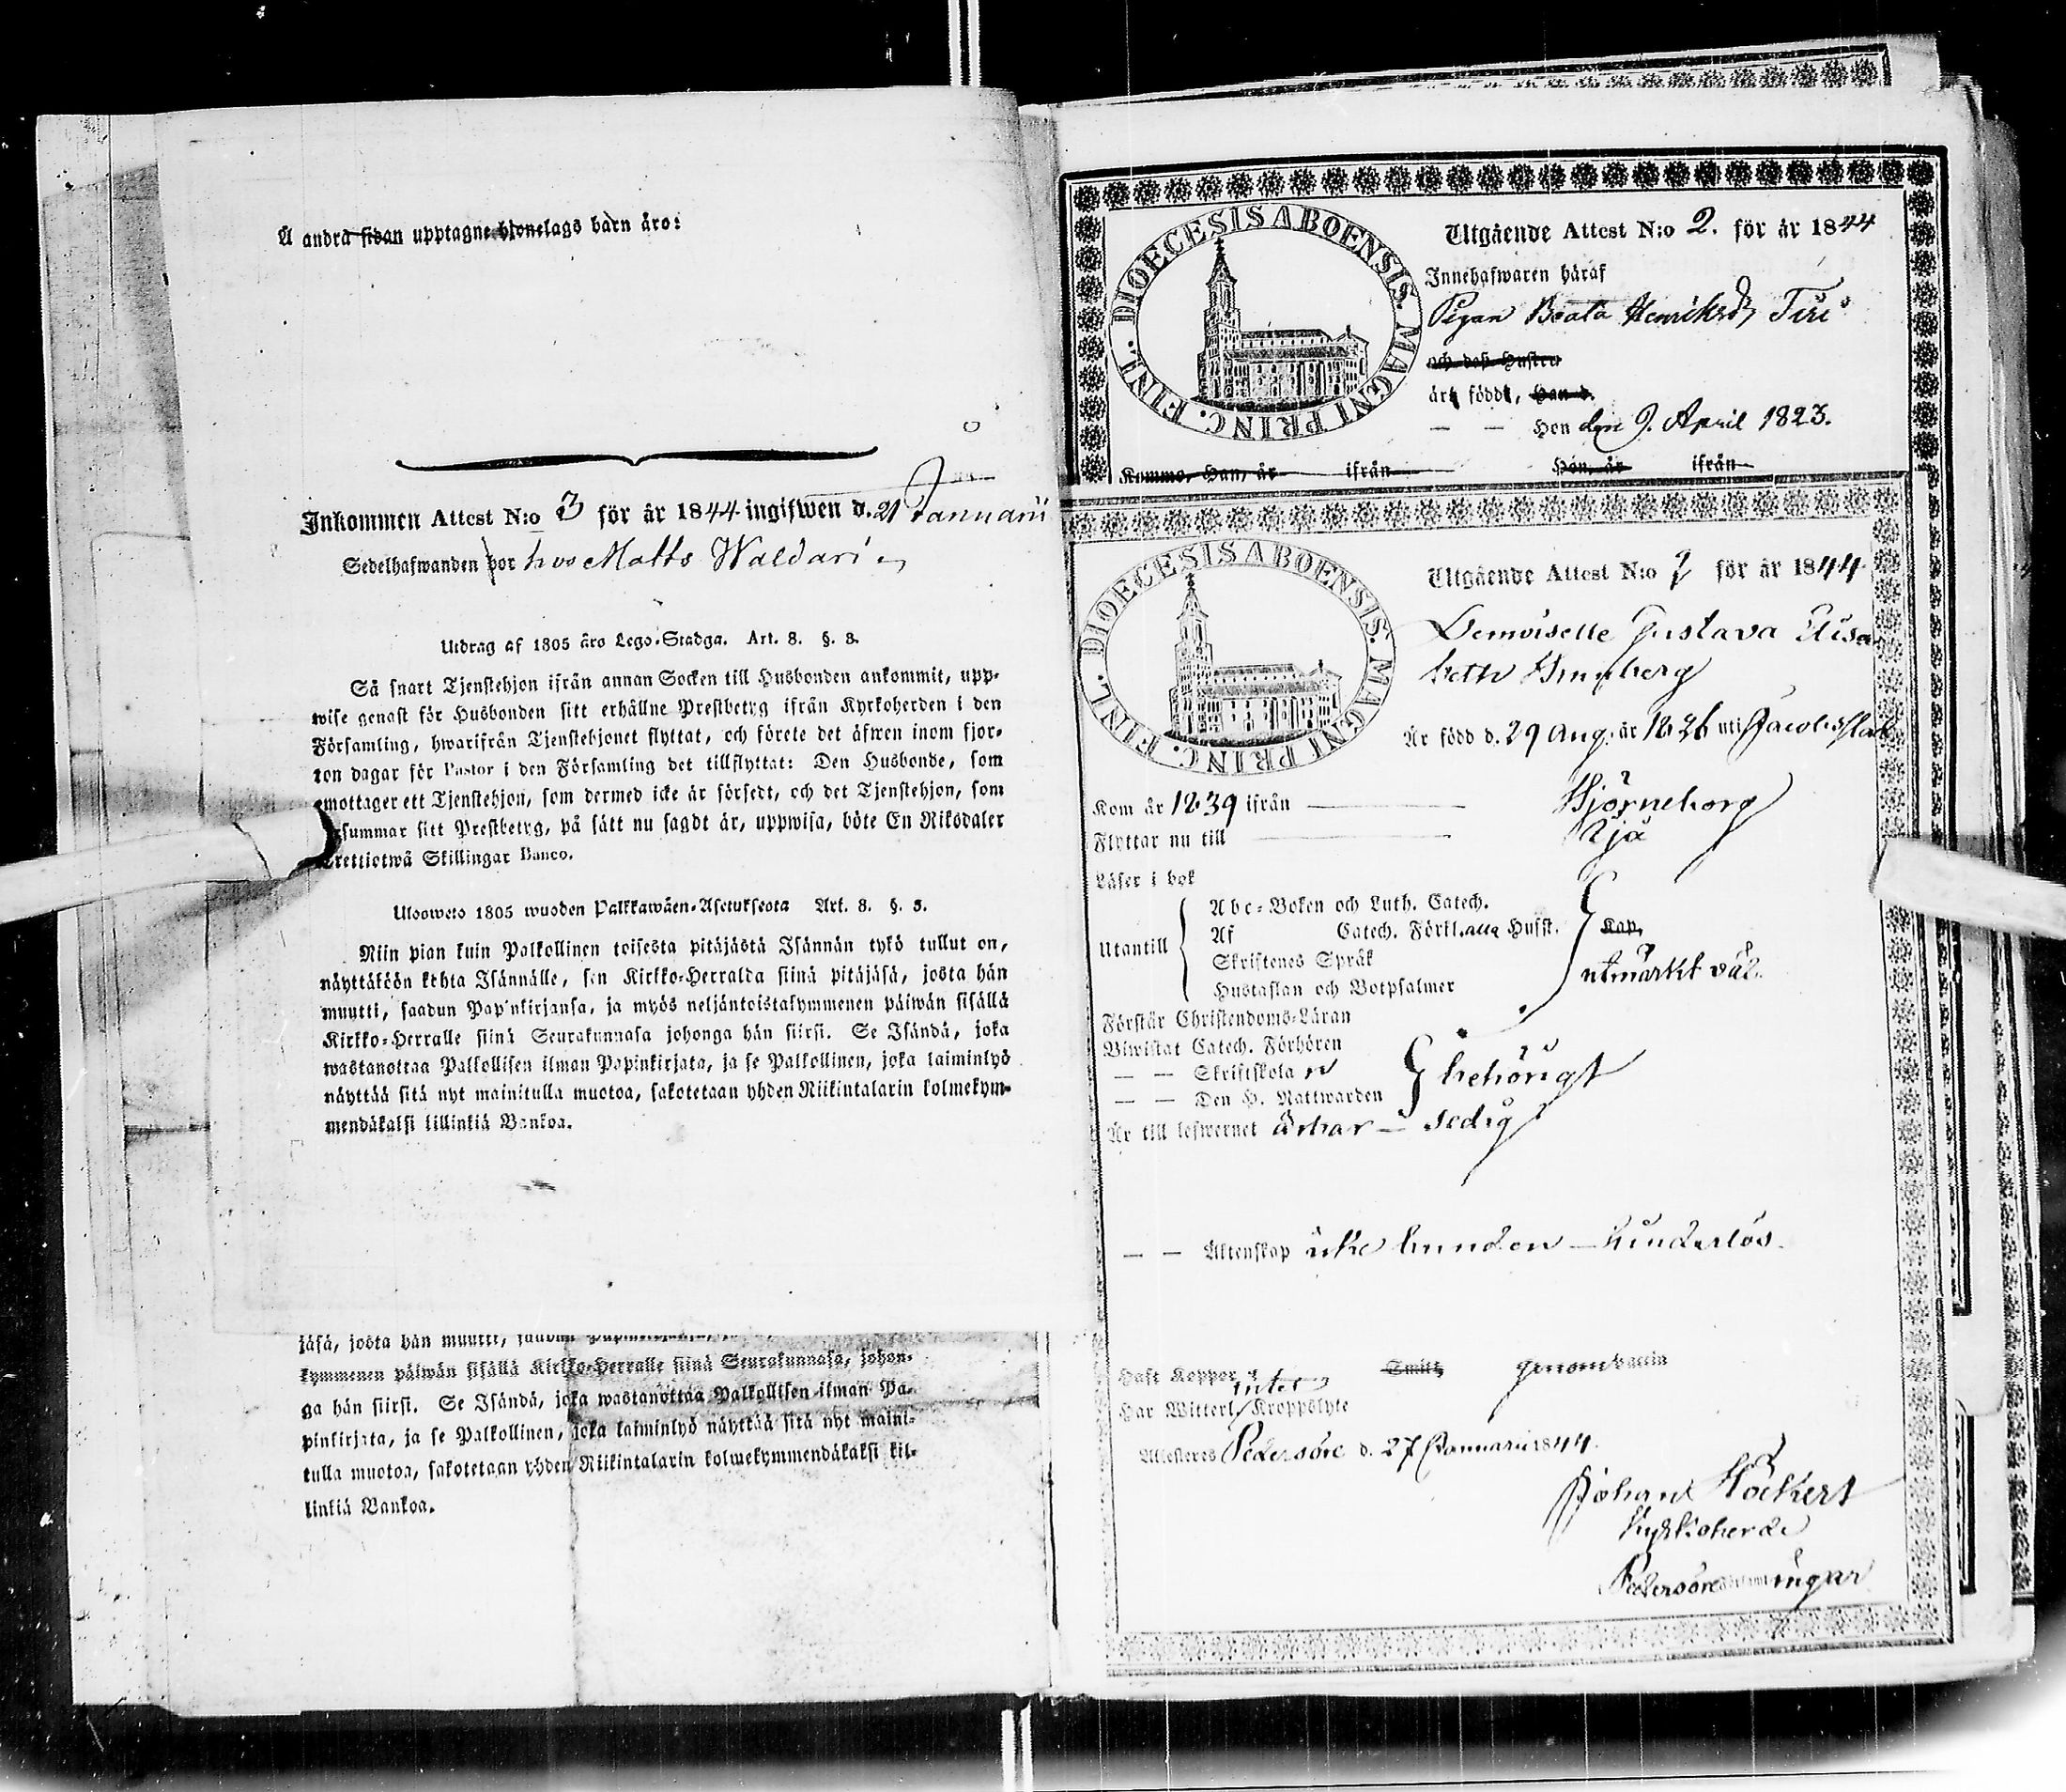 Å andra sidan upptagne hionelags barn äro:
Inkommen Attest N:o 3 för år 1844 ingifwen d. 21 Januarii
Sedelhafwanden bor hos Matts Waldari
Utdrag af 1805 års Lego-Stadga. Art. 8. §. 8.
Så snart Tjenstehjon ifrån annan Socken till Husbonden ankommit, upp-
wise genast för Husbonden sitt erhållne Prestbetyg ifrån Kyrkoherden i den
Församling, hwarifrån Tjenstehjonet flyttat, och förete det äfwen inom fjor-
ton dagar för Pastor i den Församling det tillflyttat: Den Husbonde, som
emottager ett Tjenstehjon, som dermed icke är försedt, och det Tjenstehjon, som
summar sitt Prestbetyg, på sätt nu sagdt är, uppwisa, böte En Riksdaler
Trettiotwå Skillingar Banco.
Ulosweto 1805 wuoden Palkkawäen-Asetukseota Art. 8. §. 8.
Niin pian kuin Palkollinen toisesta pitäjästä Isännän tykö tullut on,
näyttäköön kohta Isännälle, sen Kirkko-Herralda siinä pitäjäsä, josta hän
muutti, saadun Papinkirjansa, ja myös neljäntoistakymmenen päiwän sisällä
Kirkko-Herralle siinä Seurakunnasa johonga hän siirsi. Se Isändä, joka
wastanottaa Palkollisen ilman Papinkirjata, ja se Palkollinen, joka laiminlyö
näyttää sitä nyt mainitulla muotoa, sakotetaan yhden Riikintalarin kolmekym-
mendäkaksi killinkiä Bankoa.
jäsä, josta hän muutti,
kymmenen päiwän sisällä Kirkko-Herralle siinä Seurakunnasa, johon-
ga hän siirsi. Se Isändä, joka wastanottaa Palkollisen ilman Pa-
pinkirjata, ja se Palkollinen, joka laiminlyö näyttää sitä nyt maini-
tulla muotoa, sakotetaan yhden Riikintalarin kolmekymmendäkaksi kil-
linkiä Bankoa.
DIOECESIS ABOENSIS. MAGNI PRINC. FINL.
Utgående Attest N:o 2. för år 1844
Innehafwaren häraf
Pigan Beata Henriksdr
och dess Hustru
äro född, Han d.
— — Hon den 9. April 1823.
Komme, Han, år ifrån Hon, år ifrån
DIOECESIS ABOENSIS. MAGNI PRINC. FINL.
Utgående Attest N:o 2 för år 1844
Demoiselle Gustava Elisa
beth
Är född d. 29 Aug. år 1826 uti Jacobstad
Kom år 1839 ifrån Björneborg
Flyttar nu till
Läser i bok
Utantill
Abc-Boken och Luth. Catech.
Af Catech. Förkl. alla Hufst. Kap.
Skriftenes Språk utmärkt väl.
Hustaflan och Botpsalmer
Förstår Christendoms-Läran
Biwistat Catech. Förhören
— — Skriftskola behörigt
— — Den H. Nattwarden
Är till lefwernet ärbar — sedig
— — Äktenskap icke bunden — hinderlös.
Haft Koppor Smitt genom vaccin
intet
Har Witterl. Kroppslyte
Attesteres Pedersöre d. 27 Januarii 1844.
Johan Höckert
Kyrkoherde
Pedersöre